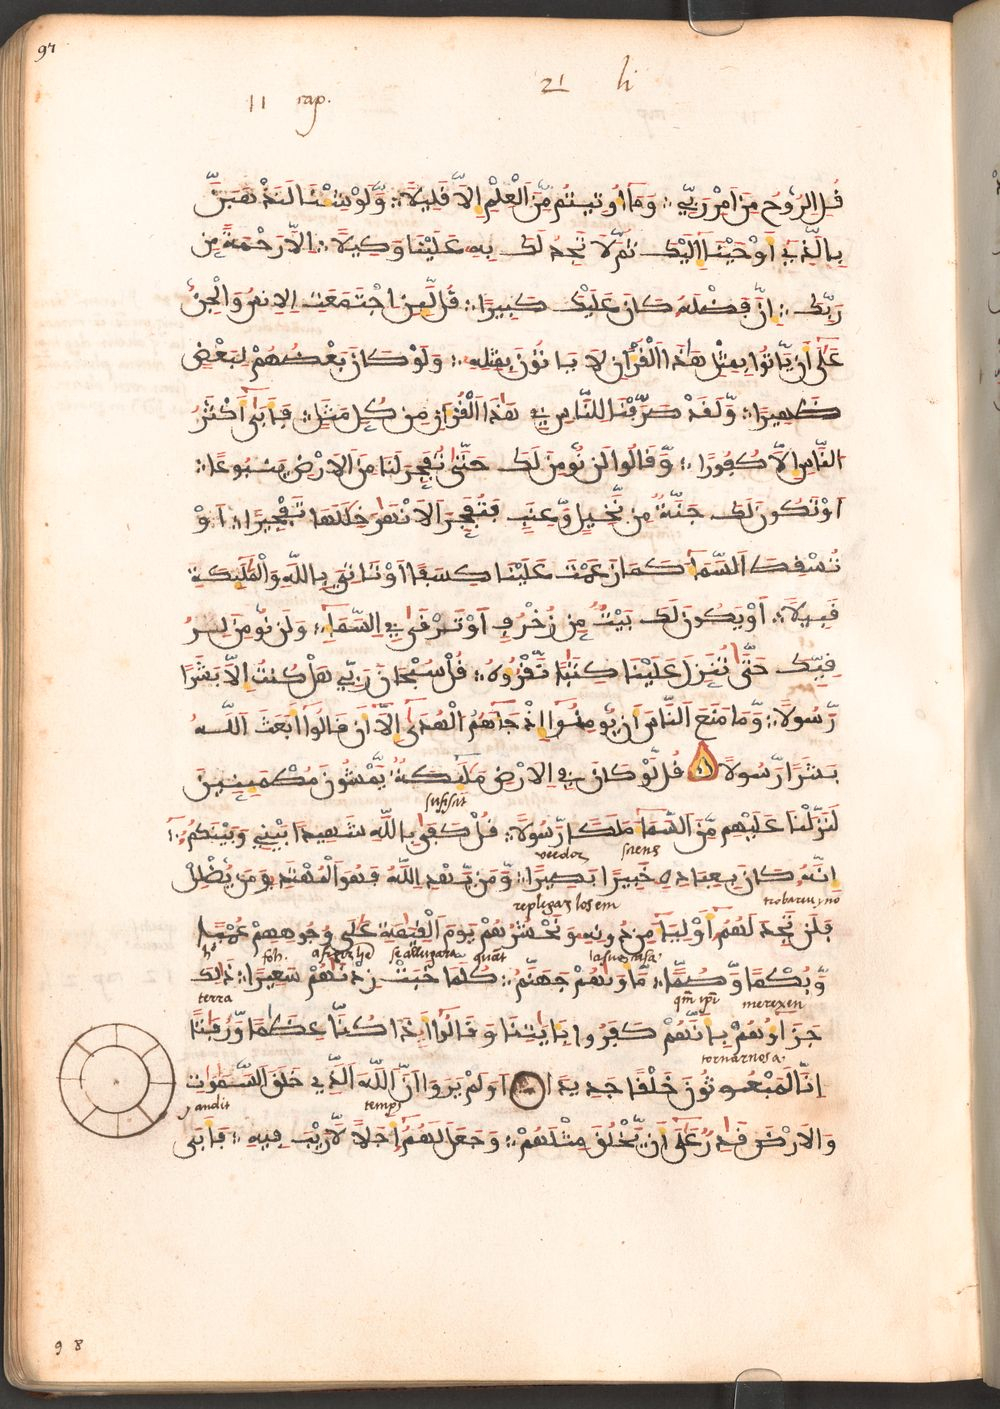 97
21 li
11 rap.
قُلِ الرُّوحُ مِنَ اَمْرِ رَبِّي وَمَا أُوتِيتُم مِّنَ اَلْعِلْمِ إِلَّا قَلِيلًا وَّلَوْ شِئْنَا لَنَذْهَبَنَّ
بِالَّذِي أَوْحَيْنَا إِلَيْكَ ثُمَّ لَا تَجِدُ لَكَ بِهِ عَلَيْنَا وَكِيلًا إِلَّا رَحْمَةً مِّن
رَّبِّكَ إِنَّ فَضْلَهُ كَانَ عَلَيْكَ كَبِيرًا قُل لَّئِنِ اجْتَمَعَتِ الِانسُ وَالْجِنُّ
عَلَى أَنْ يَّاتُوا بِمِثْلِ هَذَا اَلْقُرْآنِ لَا يَاتُونَ بِمِثْلِهِ وَلَوْ كَانَ بَعْضُهُمْ لِبَعْضٍ
ظَهِيرًا وَّلَقَدْ صَرَّفْنَا لِلنَّاسِ فِي هَذَا اَلْقُرْآنِ مِن كُلِّ مَثَلٍ فَأَبَى أَكْثَرُ
النَّاسِ إِلَّا كُفُورًا وَّقَالُوا لَن نُّومِنَ لَكَ حَتَّى تُفَجِّرَ لَنَا مِنَ الَارْضِ يَنبُوعًا
اَوْ تَكُونَ لَكَ جَنَّةٌ مِّن نَّخِيلٍ وَّعِنَبٍ فَتُفَجِّرَ اَلَانْهَرَ خِلَلَهَا تَفْجِيرًا اَوْ
تُسْقِطَ اَلسَّمَا كَمَا زَعَمْتَ عَلَيْنَا كِسَفًا اَوْ تَاتِيَ بِاللَّهِ وَالْمَلَئِكَةِ
قَبِيلًا اَوْ يَكُونَ لَكَ بَيْتٌ مِّن زُخْرُفٍ اَوْ تَرْقَى فِي اِلسَّمَا وَلَن نُّومِنَ لِرُ
قِيِّكَ حَتَّى تُنَزِّلَ عَلَيْنَا كِتَبًا نَّقْرَؤُهُ قُلْ سُبْحَانَ رَبِّي هَلْ كُنتُ إِلَّا بَشَرًا
رَّسُولًا وَّمَا مَنَعَ اَلنَّاسَ أَنْ يُّومِنُوا إِذْ جَاهُمُ الْهُدَى إِلَّا أَن قَالُوا أَبَعَثَ اَللَّهُ
بَشَرًا رَّسُولًا قُل لَّوْ كَانَ فِي اِلَارْضِ مَلَئِكَةٌ يَّمْشُونَ مُطْمَئِنِّينَ
sufisit
لَنَزَّلْنَا عَلَيْهِم مِّنَ اَلسَّمَا مَلَكًا رَّسُولًا قُلْ كَفَى بِاللَّهِ شَهِيدًا بَيْنِي وَبَيْنَكُمُ
veedor siens
إِنَّهُ كَانَ بِعِبَادِهِ خَبِيرًا بَصِيرًا وَّمَنْ يَّهْدِ اِللَّهُ فَهُوَ اَلْمُهْتَدِ وَمَنْ يُّضْلِلْ
replegaz los em trobareu no
فَلَن تَجِدَ لَهُمُ أَوْلِيَا مِن دُونِهِ وَنَحْشُرُهُمْ يَوْمَ اَلْقِيَمَةِ عَلَى وُجُوهِهِمْ عُمْيًا
foh. se allugara quāt la sue casa
وَّبُكْمًا وَّصُمًّا مَّاوَىهُمْ جَهَنَّمُ كُلَّمَا خَبَتْ زِدْنَهُمْ سَعِيرًا ذَلِكَ
terra merexen
جَزَاؤُهُمْ بِأَنَّهُمْ كَفَرُوا بِآيَتِنَا وَقَالُوا أَذَا كُنَّا عِظَمًا وَّرُفَتًا
tornarnos a
إِنَّا لَمَبْعُوثُونَ خَلْقًا جَدِيدًا أَوَلَمْ يَرَوَا أَنَّ اَللَّهَ اَلَّذِي خَلَقَ اَلسَّمَوَتِ
y andit temps
وَالَارْضَ قَادِرٌ عَلَى أَنْ يَّخْلُقَ مِثْلَهُمْ وَجَعَلَ لَهُمُ أَجَلًا لَّا رَيْبَ فِيهِ فَأَبَى
98